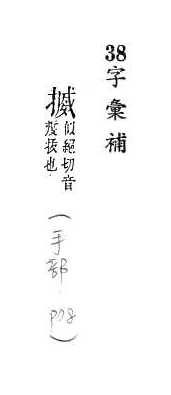 38字彙補
似絕切音
拔也
(手部 P78)